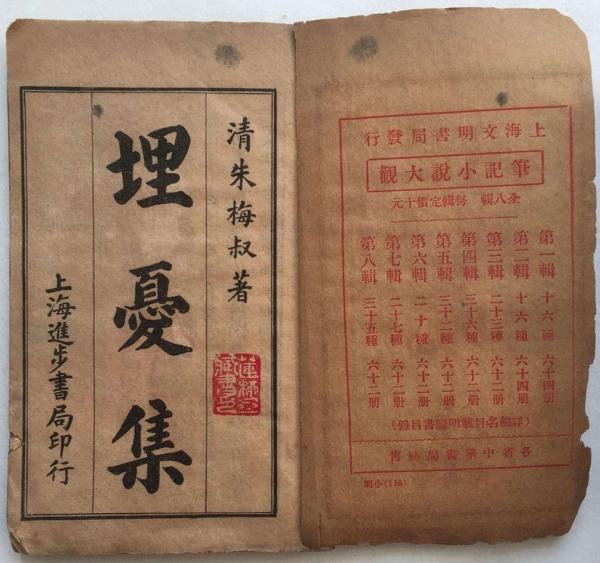 上海文明書局發行
筆記小說大觀
全八輯 每輯定價十元
第一輯 十六種 六十四册
第二輯 十六種 六十四册
第三輯 二十三種 六十二册
第四輯 三十六種 六十二册
第五輯 三十二種 六十二册
第六輯 二十種 六十二册
第七輯 二十七種 六十二册
第八輯 三十五種 六十二册
(詳細名目載明圖書目錄)
各省中華書局經售
(118)
清朱梅叔著
埋憂集
上海進步書局印行